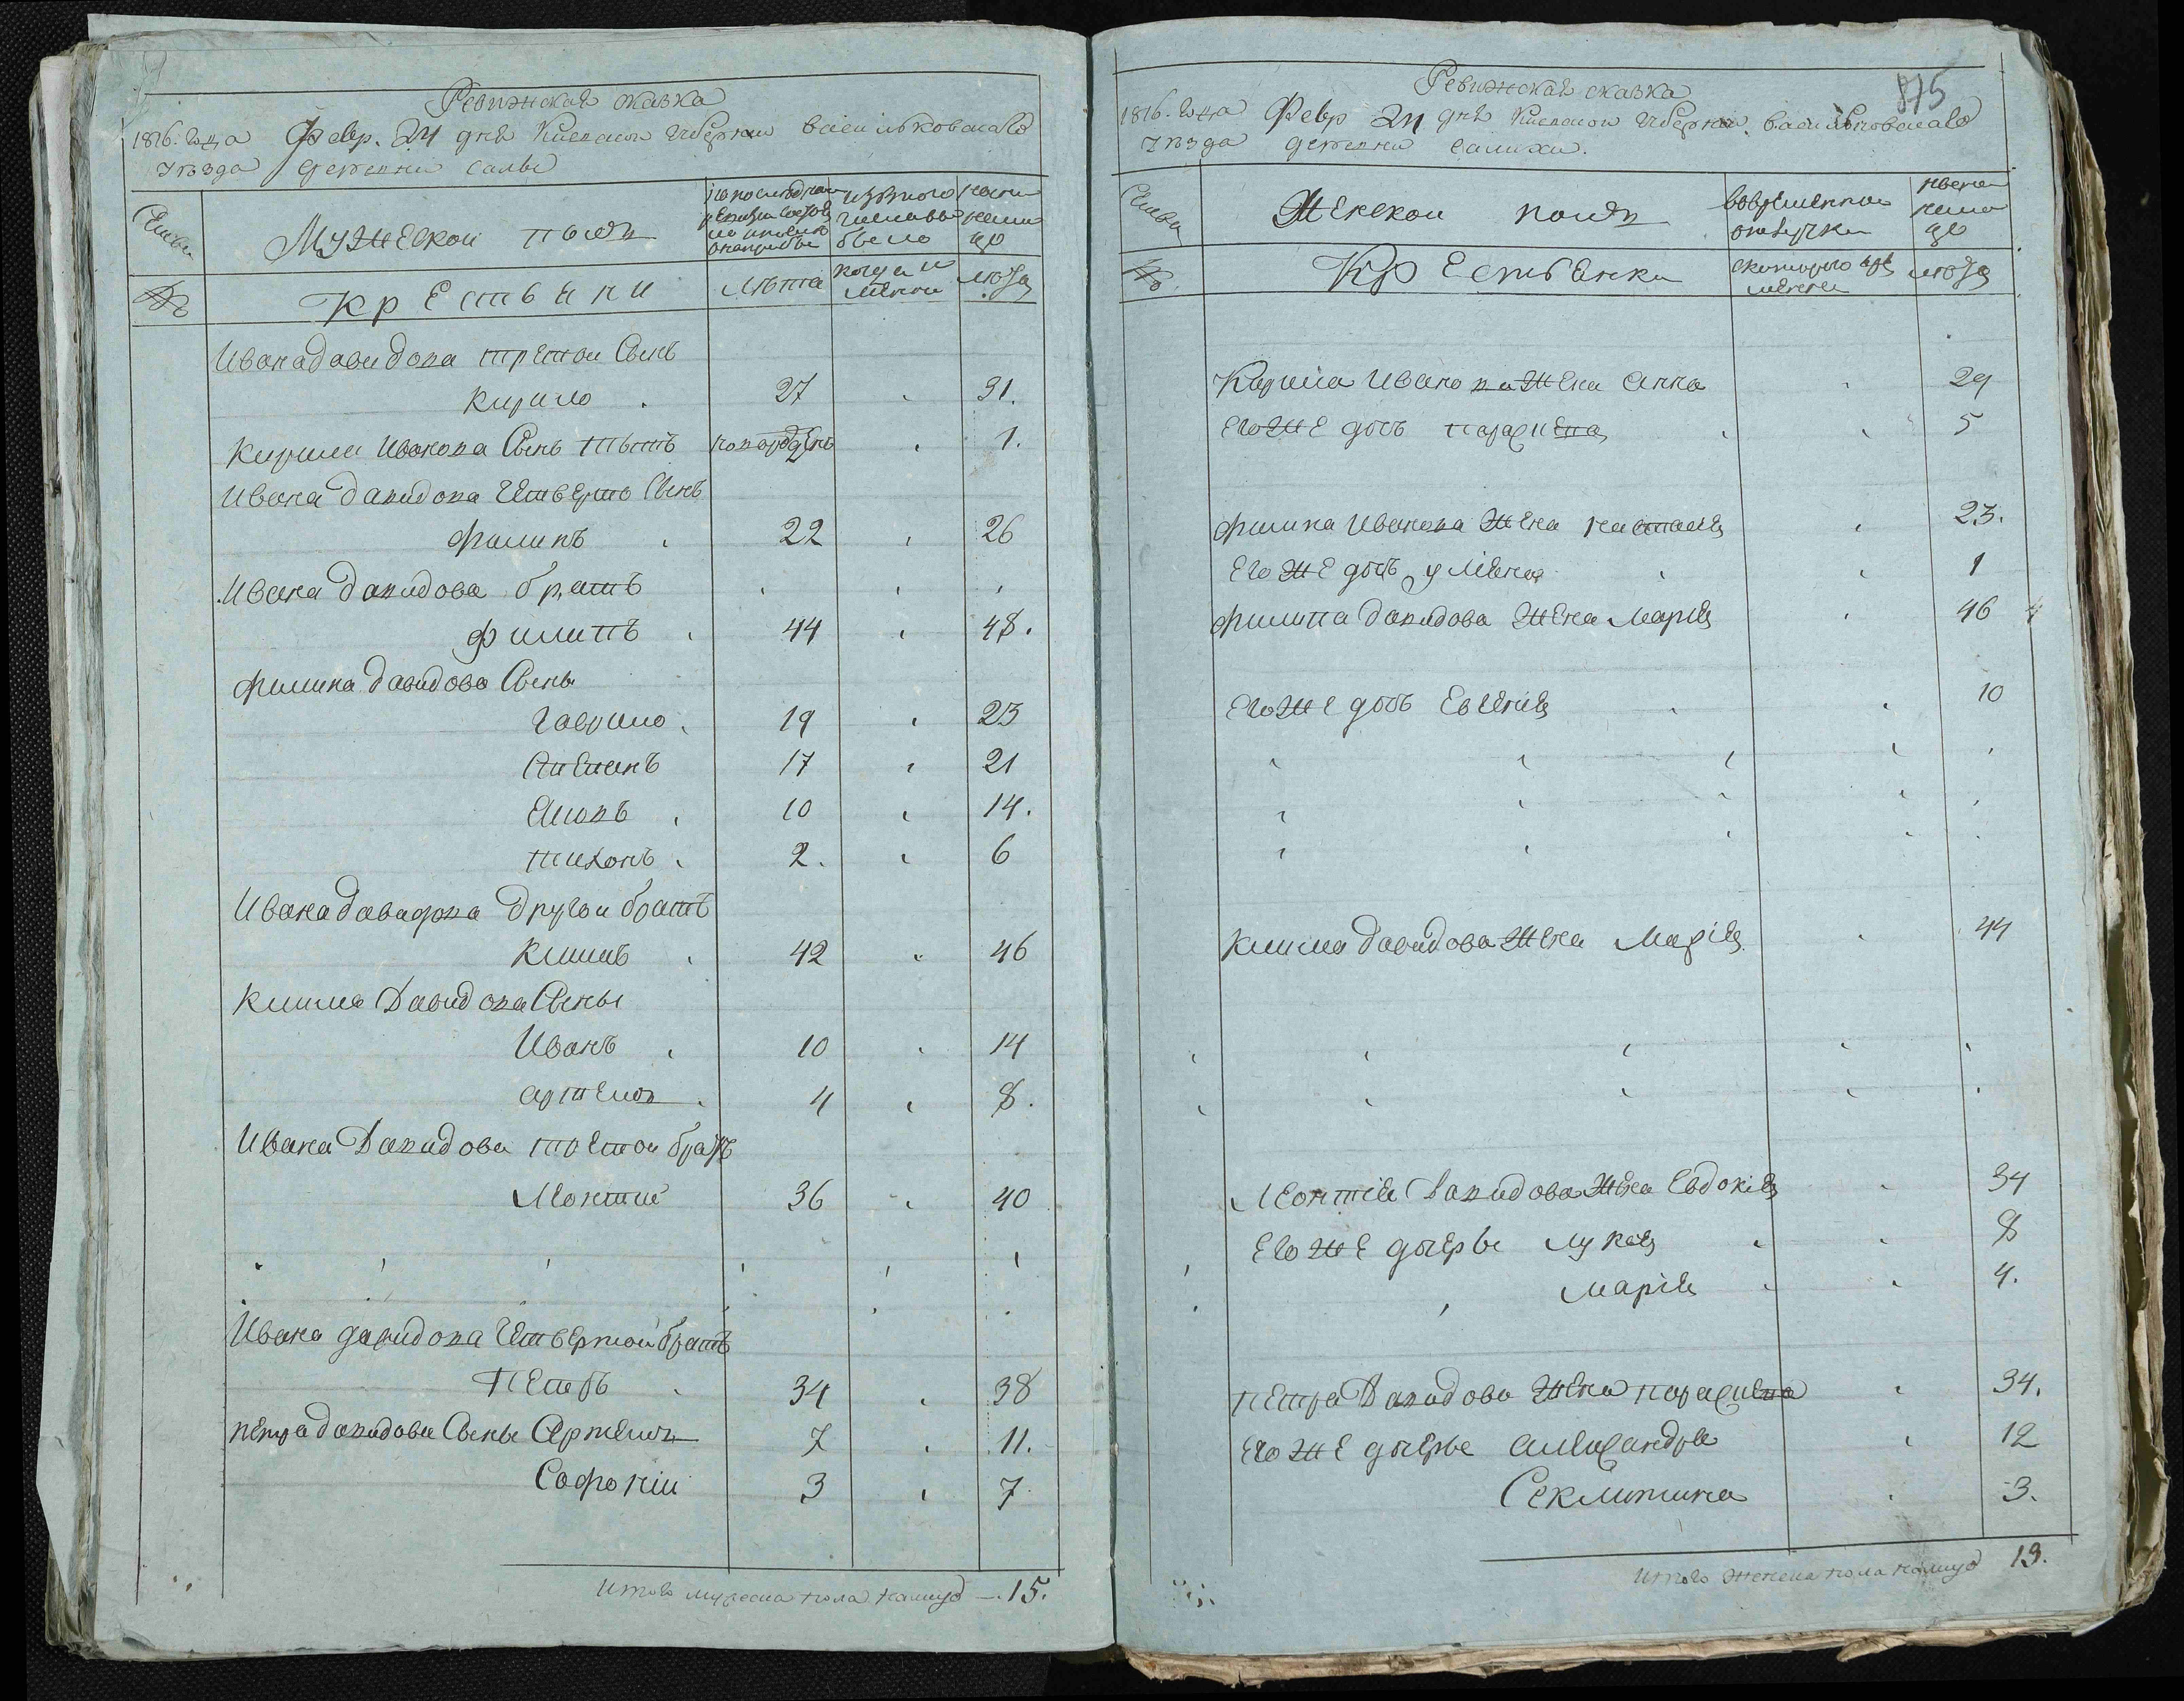 Ревижская сказка
1816. года Февр. 24 дня Киевской Губернии Васильковскаго
уѣзда деревни Салыхи
Семьи
Мужеской полъ
по последней ревизіи состояло и после оной прибыло
изътого числа выбыло
ныне на лицо
№
Крестьяни
Лѣта
когда имянно
лѣта
Ивана Давидова третои Сынъ
Кирило 27 31.
Кирила Иванова Сынъ Титъ новорожденъ 1.
Ивана Давидова Четверто Сынъ
Филипъ 22 26
Ивана Давидова братъ
Филипъ 44 48.
Филипа Давидова Сыны
Гаврило 19 23
Степанъ 17 21
Якопъ 10 14.
Тихонъ 2. 6
Ивана Давидова другои братъ
Климъ 42 46
Клима Давидова Сыны
Иванъ 10 14
Артемъ 4 8.
Ивана Давидова третои братъ
Леонтий 36 40
Ивана Давидова Четвертой братъ
Петръ 34 38
Петра Давидова Сыны Артемъ 7 11.
Софроній 3 7
Итого мужеска пола налицо — 15.
875
Ревижская сказка
1816. года Февр 24 дня Киевской Губернии. Васильковскаго
уѣзда деревни Салихи.
Семьи
Женской полъ
вовременной отлучки
ныне на лицо
№
Крестьянки
скоторого времени
лѣта
Кирила Иванова Жена Анна 29
Его же дочь Параскева 5
Филипа Иванова Жена Настасия 23.
Его же дочь Уляна 1
Филипа Давидова Жена Марія 46
Его же дочь Евгенія 10
Клима Давидова Жена Марія 44
Леонтія Давидова Жена Евдокія 34
Его же дочеры Лукія 8
Марія 4.
Петра Давидова Жена Параскева 34.
Его же дочеры Александра 12
Секлитина 3.
Итого женска пола налицо 13.